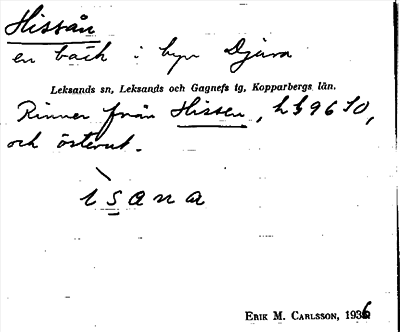 Hissån
en bäck i byn Djura
Leksands sn, Leksands och Gagnefs tg, Kopparbergs län.
Rinner från Hissen, 9610,
och österut.
ısana
ERIK M. CARLSSON, 1936